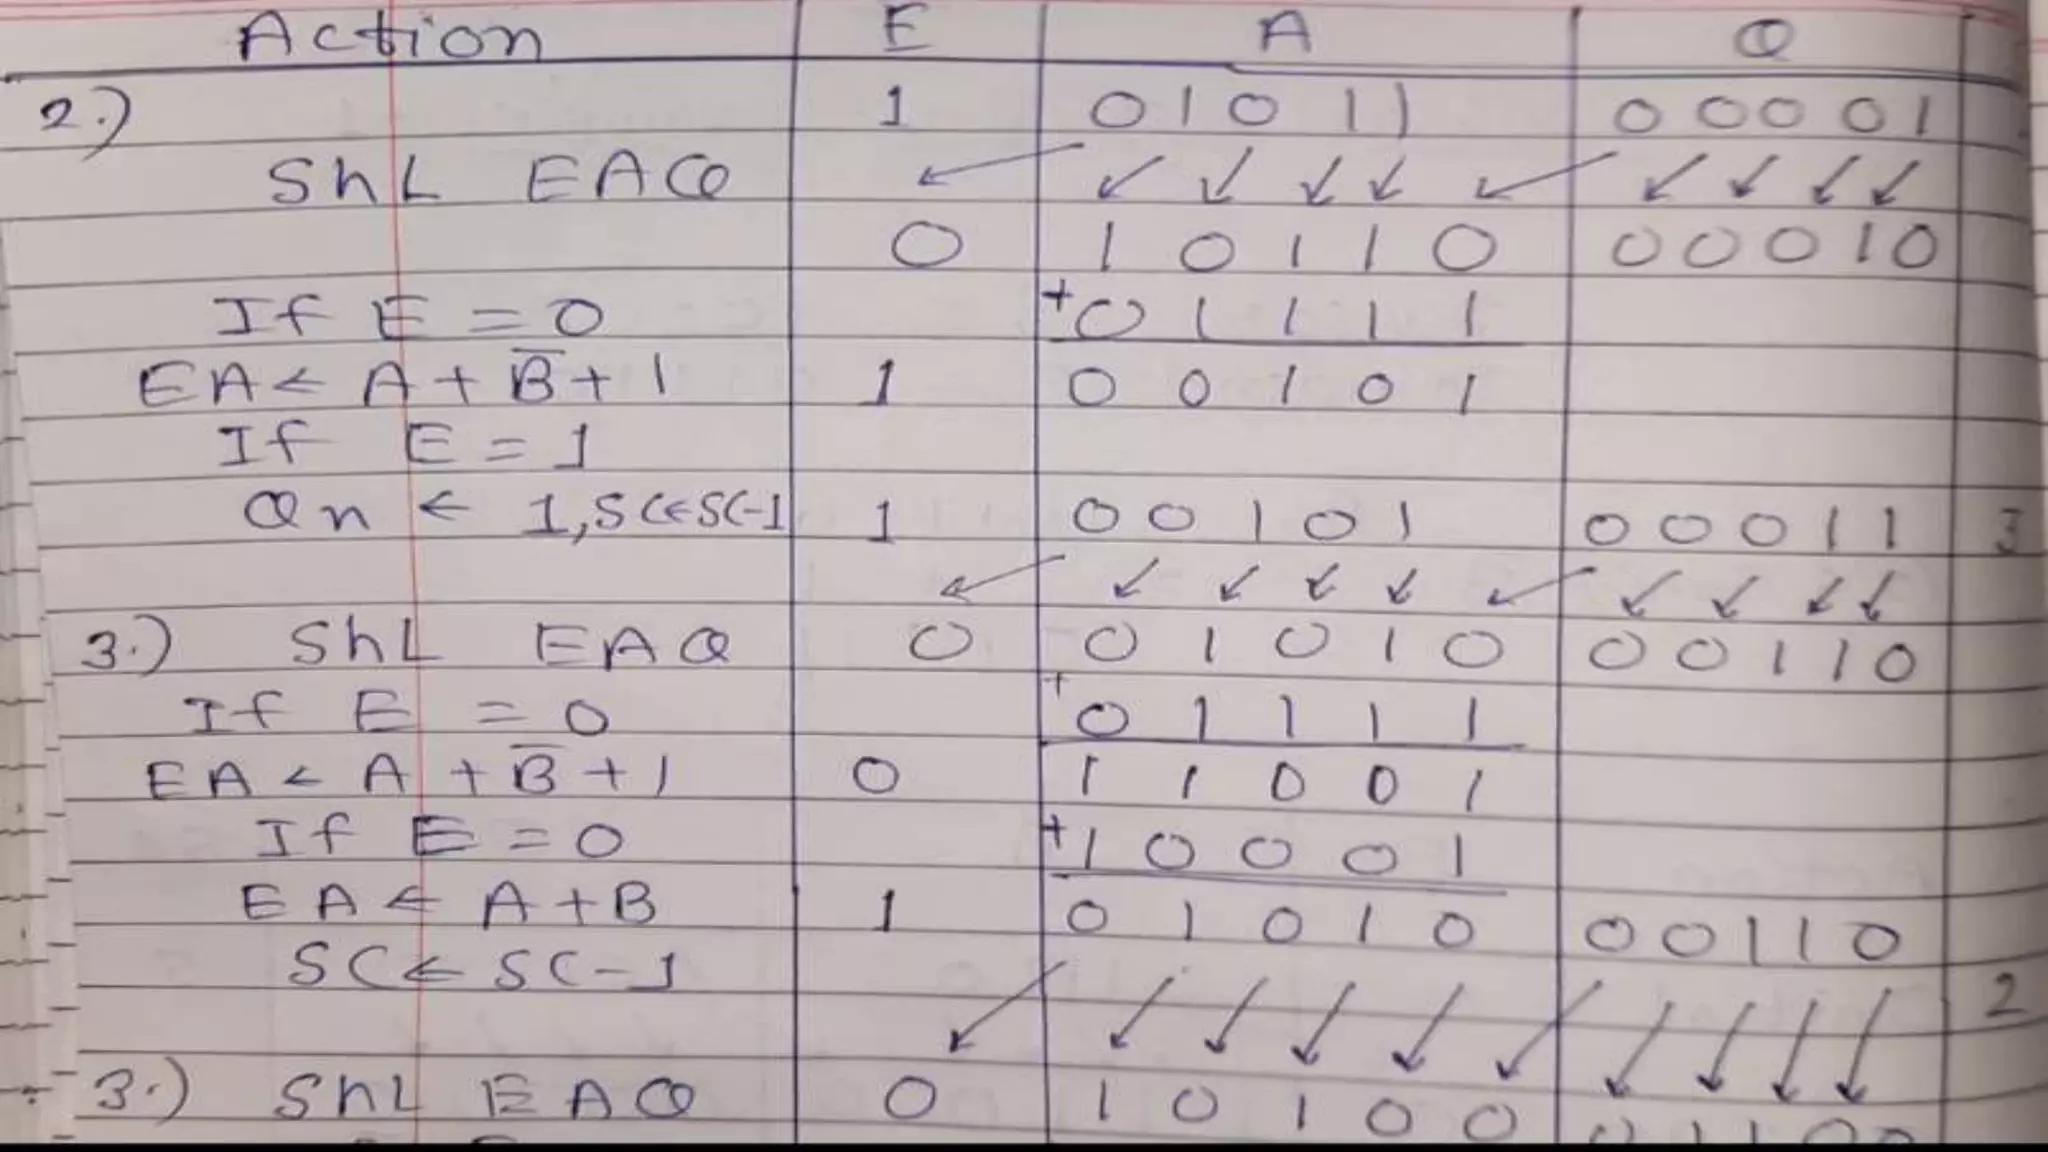 Action E A Q
2.) 1 01011 00001
ShL EAQ
0 10110 00010
If E = 0 + 01111
EA ← A + B̅ + 1 1 00101
If E = 1
Qn ← 1, SC←SC-1 1 00101 00011 3
3.) ShL EAQ 0 01010 00110
If E = 0 + 01111
EA ← A + B̅ + 1 0 11001
If E = 0 + 10001
EA ← A + B 1 01010 00110
SC ← SC - 1 2
3.) ShL EAQ 0 10100 01100